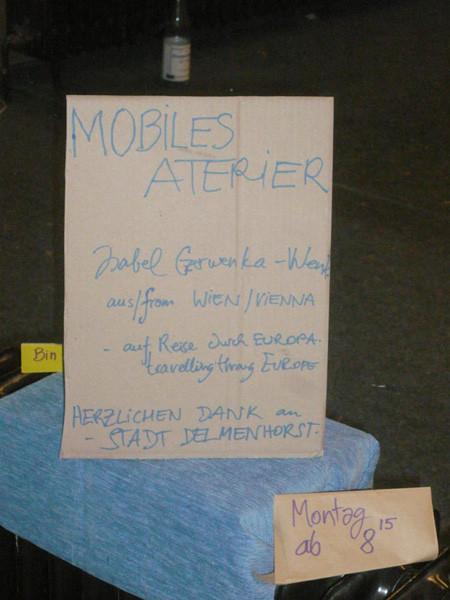 MOBILES
ATERIER
Isabel Czerwenka-Wenk
aus/from WIEN/VIENNA
- auf Reise durch EUROPA.
travelling throug EUROPE
HERZLICHEN DANK an
- STADT DELMENHORST.
Bin
Montag
ab 8 15